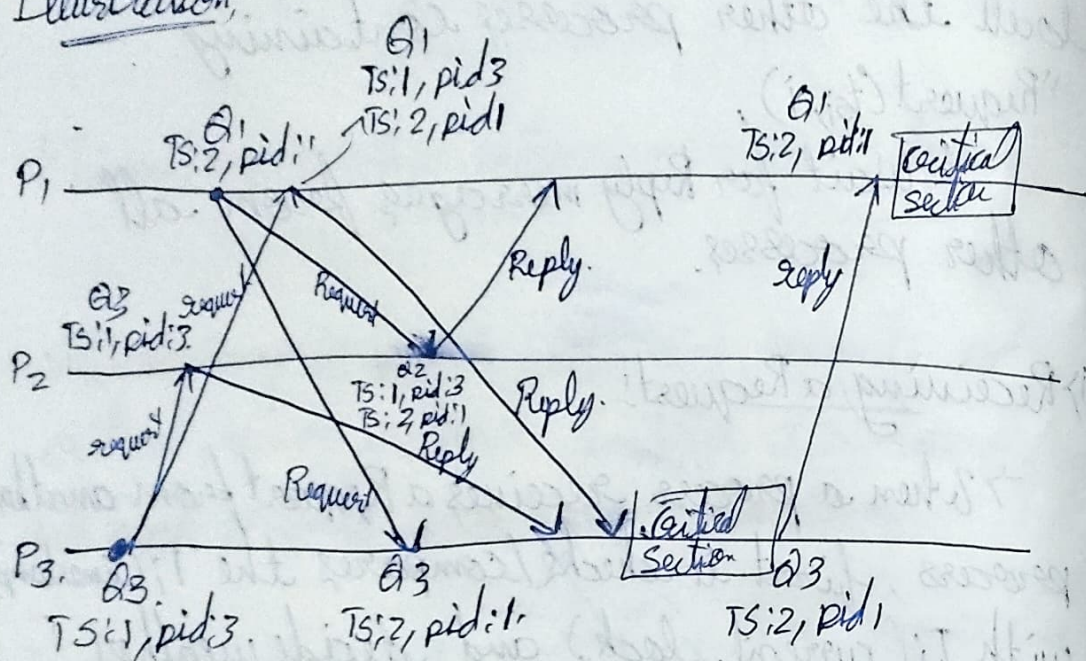 Illustration,
Q1
TS:1, pid3
TS:2, pid1
Q1
TS:2, pid:1
Q1
TS:2, pid:1
Critical
section
P1
request
Request
Reply.
reply
Q3
TS:1, pid:3
P2
Q2
TS:1, pid:3
TS:2, pid:1
Reply
Reply.
request
Request
Critical
section
P3.
Q3
TS:1, pid:3.
Q3
TS:2, pid:1.
Q3
TS:2, pid1